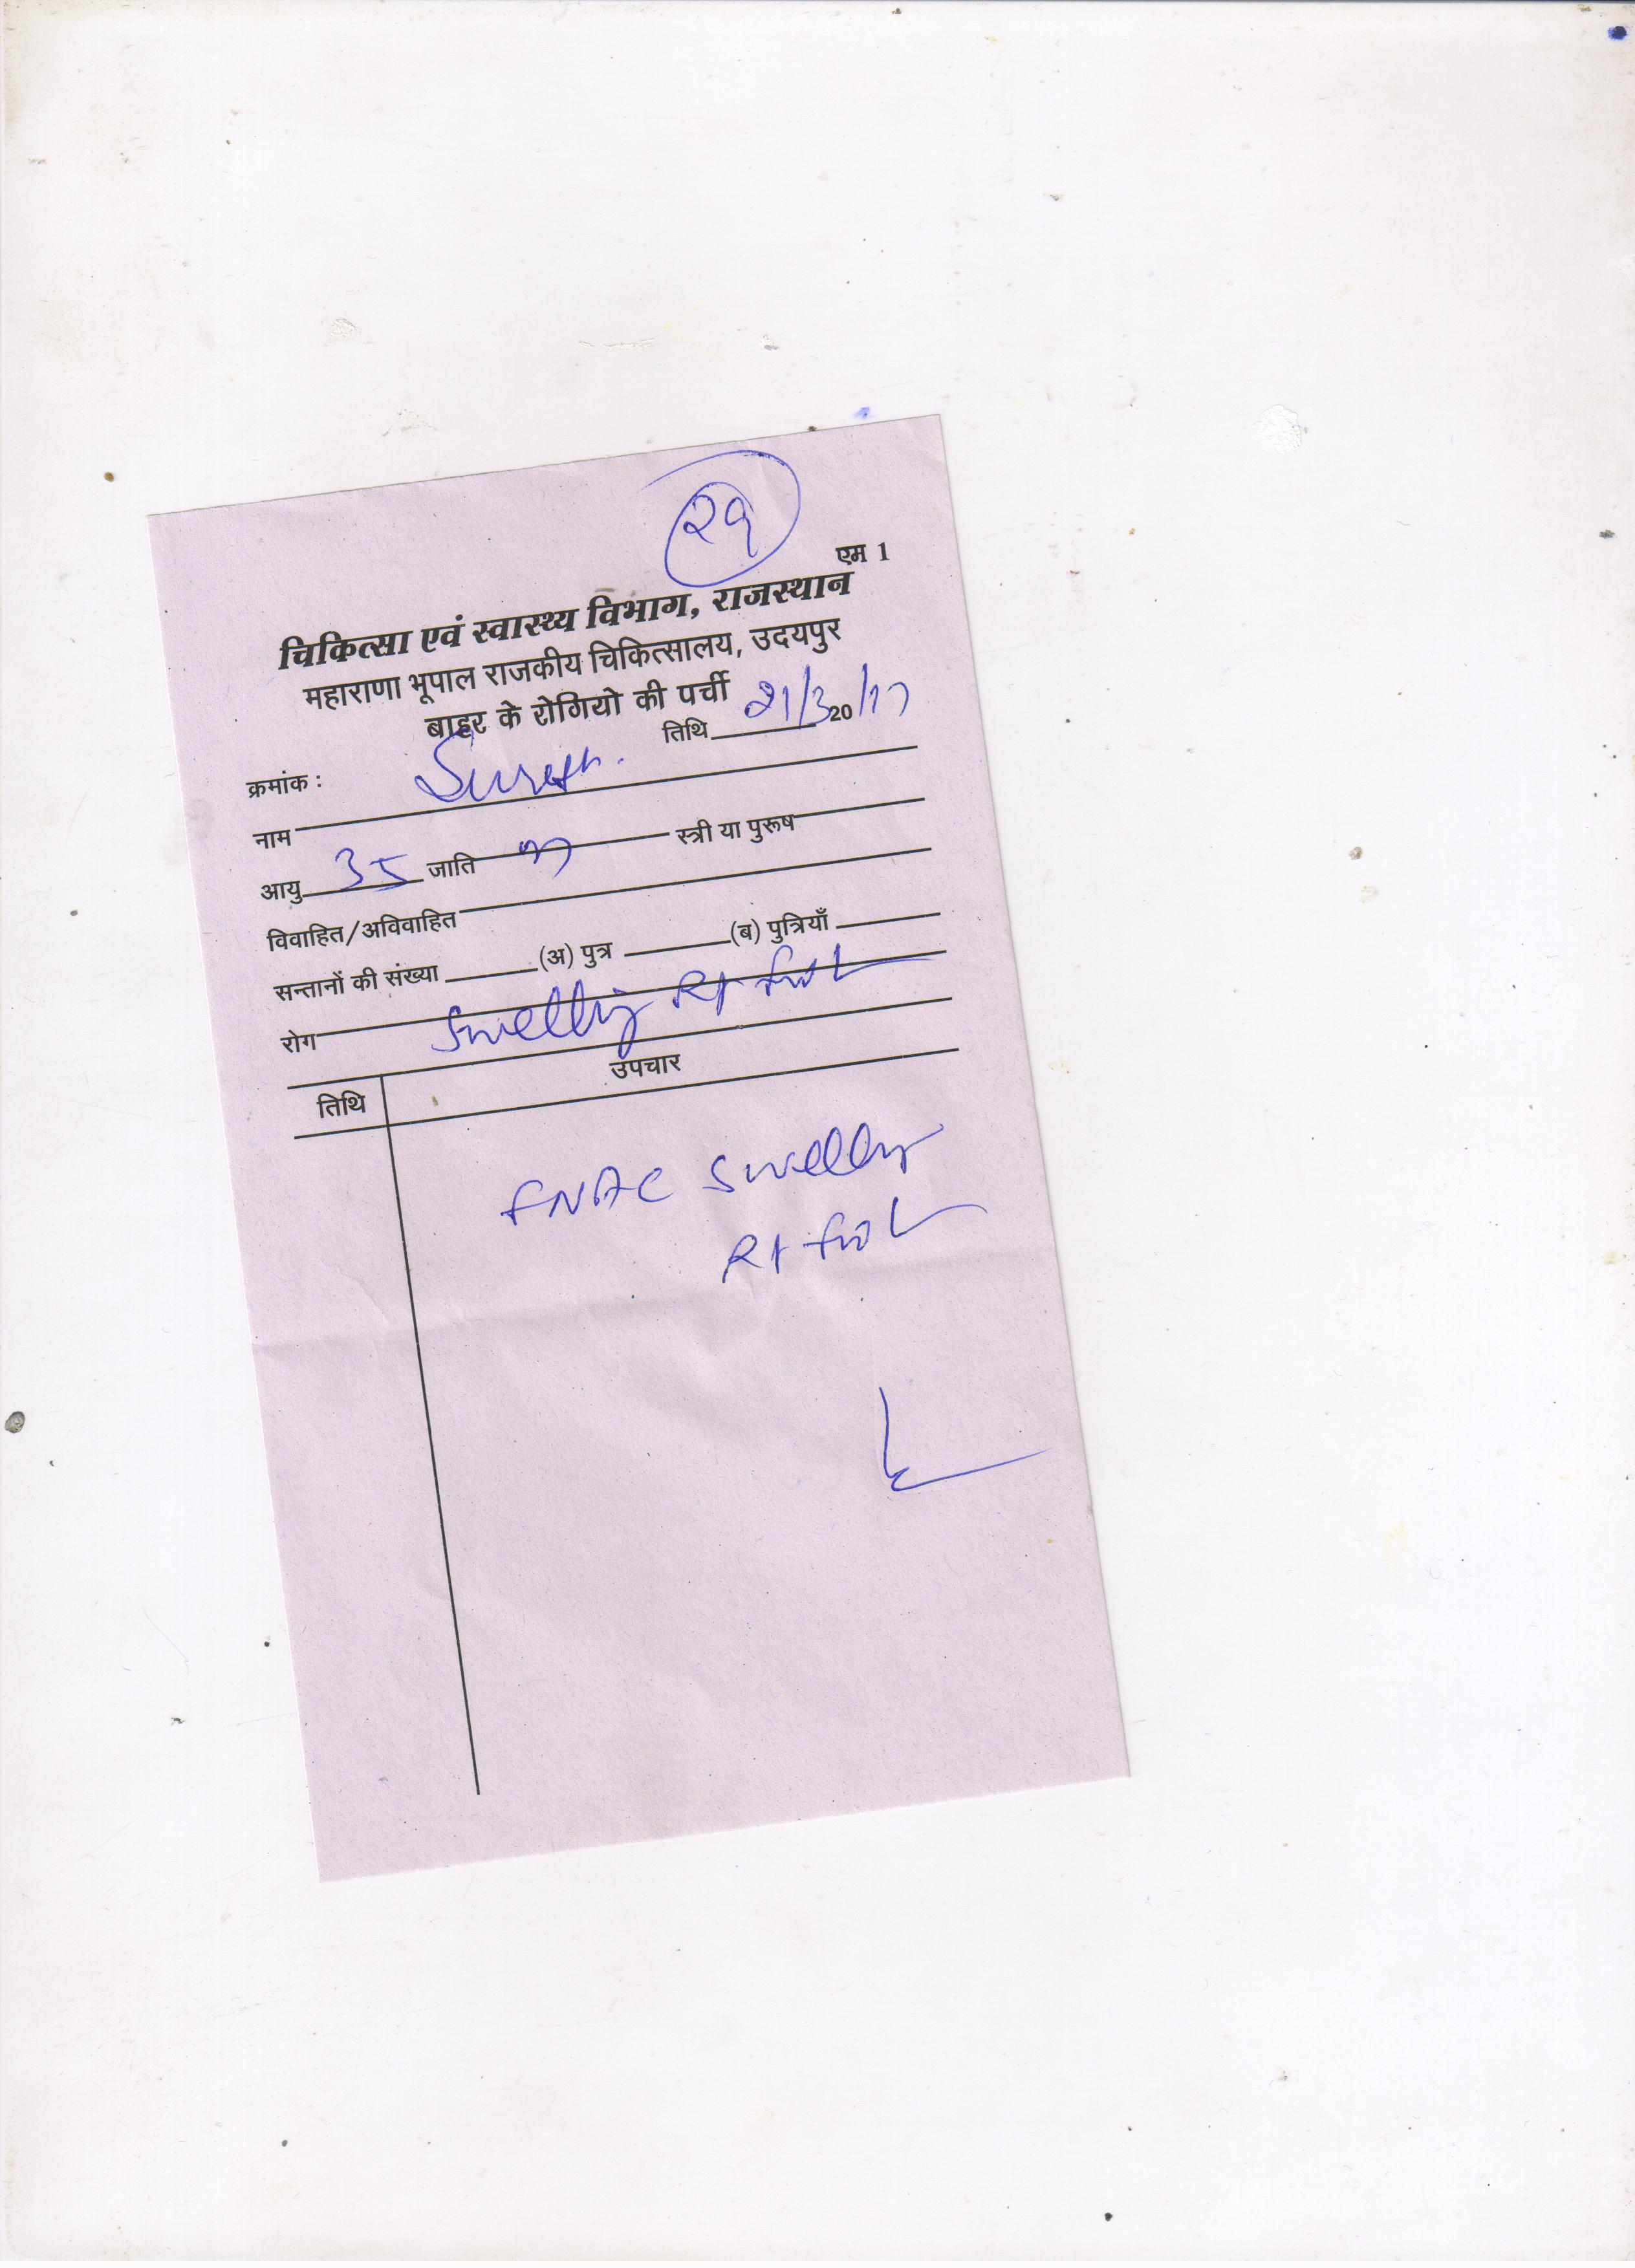 २१
एम 1
चिकित्सा एवं स्वास्थ्य विभाग, राजस्थान
महाराणा भूपाल राजकीय चिकित्सालय, उदयपुर
बाहर के रोगियो की पर्ची
तिथि 21/3 20/17
क्रमांक :
नाम Suresh.
आयु 35 जाति स्त्री या पुरूष
विवाहित/अविवाहित
सन्तानों की संख्या (अ) पुत्र (ब) पुत्रियाँ
रोग Swelling Rt foot
तिथि उपचार
FNAC Swelling
Rt foot